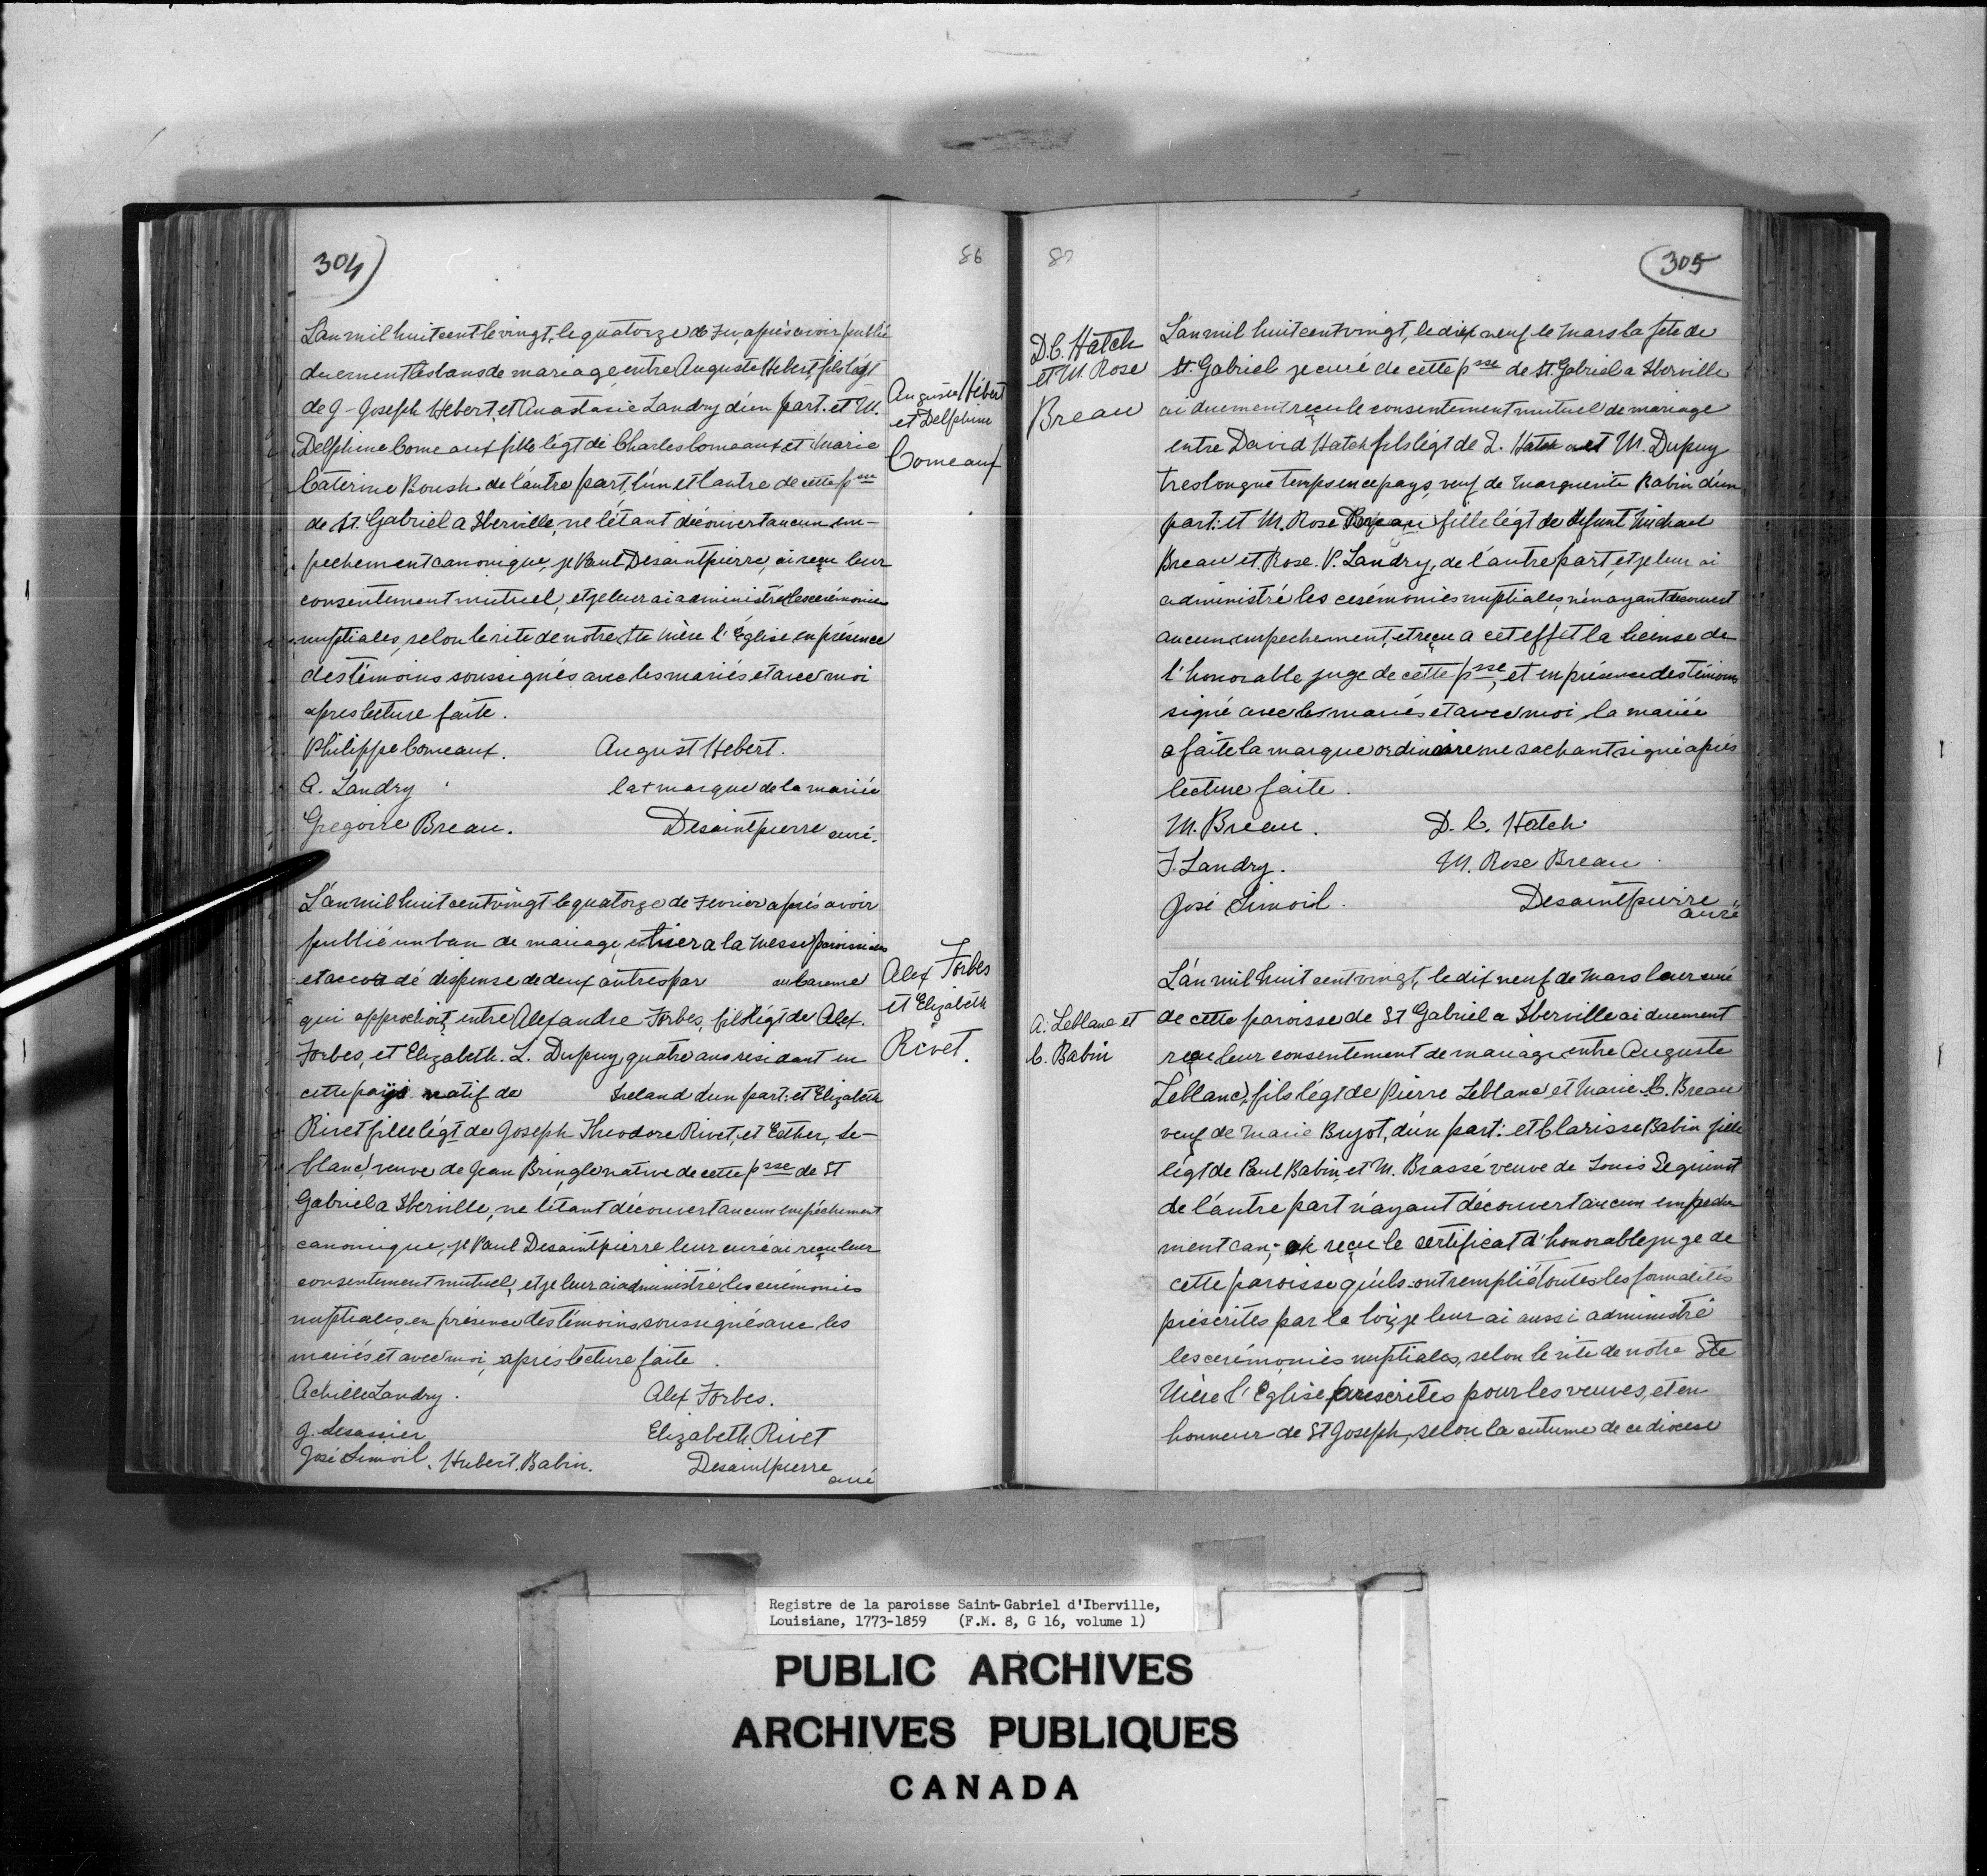 304)
86
L'an mil huit cent le vingt, le quatorze de Fev, après avoir publié
duement les bans de mariage entre Auguste Hebert, fils légt
de J-Joseph Hebert, et Anastasie Landry d'un part. et M.
Delphine Comeaux fille légt de Charles Comeaux et Marie
Caterine Boush de l'autre part, l'un et l'autre de cette psse
de St. Gabriel a Iberville, ne l'étant découvert aucun em-
pechement canonique, je Paul Desaintpierre, ai reçu leur
consentement mutuel, et je leur ai administré les cerémonies
nuptiales, selon le rite de notre Ste Mère l'Église en présence
des témoins soussignés avec les mariés et avec moi
apres lecture faite.
Philippe Comeaux. August Hebert.
A. Landry la + marque de la mariée
Gregoire Breau. Desaintpierre curé.
Auguste Hébert
et Delphine
Comeaux
L'an mil huit cent vingt le quatorze de Fevrier après avoir
publié un ban de mariage, a la Messe paroissiale
et accordé dispense de deux autres par au bareme
qui approchoit, entre Alexandre Forbes, fils légt de Alex.
Forbes, et Elizabeth. L. Dupuy, quatre ans residant en
cette pays natif de Ireland d'un part: et Elizabeth
Rivet fille légt de Joseph Theodore Rivet, et Esther, Le-
blanc, veuve de Jean Bringle native de cette psse de St
Gabriel a Iberville, ne l'étant découvert aucun empêchement
canonique, je Paul Desaintpierre leur curé ai reçu leur
consentement mutuel, et je leur ai administré les cerémonies
nuptiales, en présence des témoins soussignés avec les
mariés et avec moi, après lecture faite.
Achille Landry. Alex Forbes.
J. Lesassier Elizabeth Rivet
José Limoil. Hubert. Babin. Desaintpierre
curé
Alex Forbes
et Elizabeth
Rivet.
87
305
D.C. Hatch
et M. Rose
Breau
L'an mil huit cent vingt, le dix neuf le Mars la fete de
St. Gabriel je curé de cette psse de St. Gabriel a Iberville
ai duement reçu le consentement mutuel de mariage
entre David Hatch fils légt de Z. Hatch et M. Dupuy
tres longue temps en ce pays, veuf de Marguerite Babin d'un
part: et M. Rose Breau fille légt de defunt Michael
Breau et Rose. P. Landry, de l'autre part, et je leur ai
administré les cerémonies nuptiales, n'en ayant découvert
aucun empechement, et reçu a cet effet la license de
l'honorable juge de cette psse, et en présence des témoins
signé avec les mariés et avec moi, la mariée
a faite la marque ordinaire ne sachant signé après
lecture faite.
M. Breau. D. C. Hatch.
F. Landry. M. Rose Breau.
José Limoil. Desaintpierre
curé
A. Leblanc et
C. Babin
L'an mil huit cent vingt, le dix neuf de Mars leur curé
de cette paroisse de St Gabriel a Iberville ai duement
reçu leur consentement de mariage entre Auguste
Leblanc, fils légt de Pierre Leblanc et Marie B. Breau
veuf de Marie Bujot, d'un part: et Clarisse Babin fille
légt de Paul Babin et M. Brassé veuve de Louis
de l'autre part n'ayant découvert aucun empeche
ment can; reçu le certificat d'honorable juge de
cette paroisse qu'ils ont remplié toutes les formalités
préscrites par la loi, je leur ai aussi administré
les cerémonies nuptiales, selon le rite de notre Ste
Mère l'Eglise prescrites pour les veuves, et en
honneur de St Joseph, selon la cutume de ce diocese
Registre de la paroisse Saint-Gabriel d'Iberville,
Louisiane, 1773-1859 (F.M. 8, G 16, volume 1)
PUBLIC ARCHIVES
ARCHIVES PUBLIQUES
CANADA